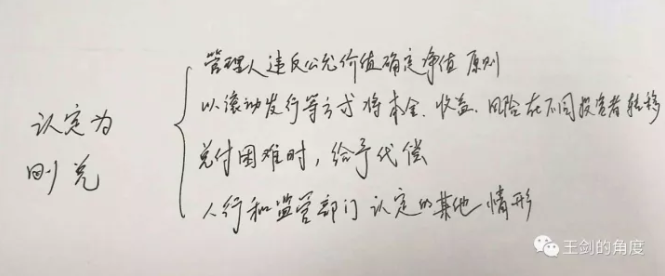 认定为
刚兑
管理人违反公允价值确定净值原则
以滚动发行等方式将本金、收益、风险在不同投资者转移
兑付困难时，给予代偿
人行和监管部门认定的其他情形
王剑的角度